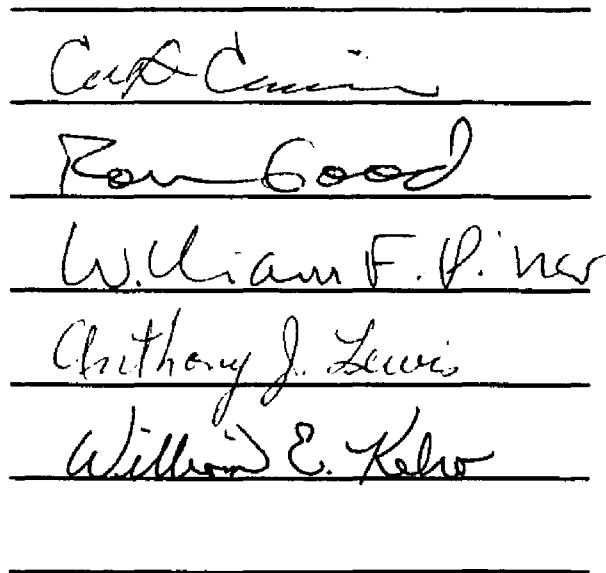 Ron Good
William F. Pinar
Anthony J. Lewis
William E.